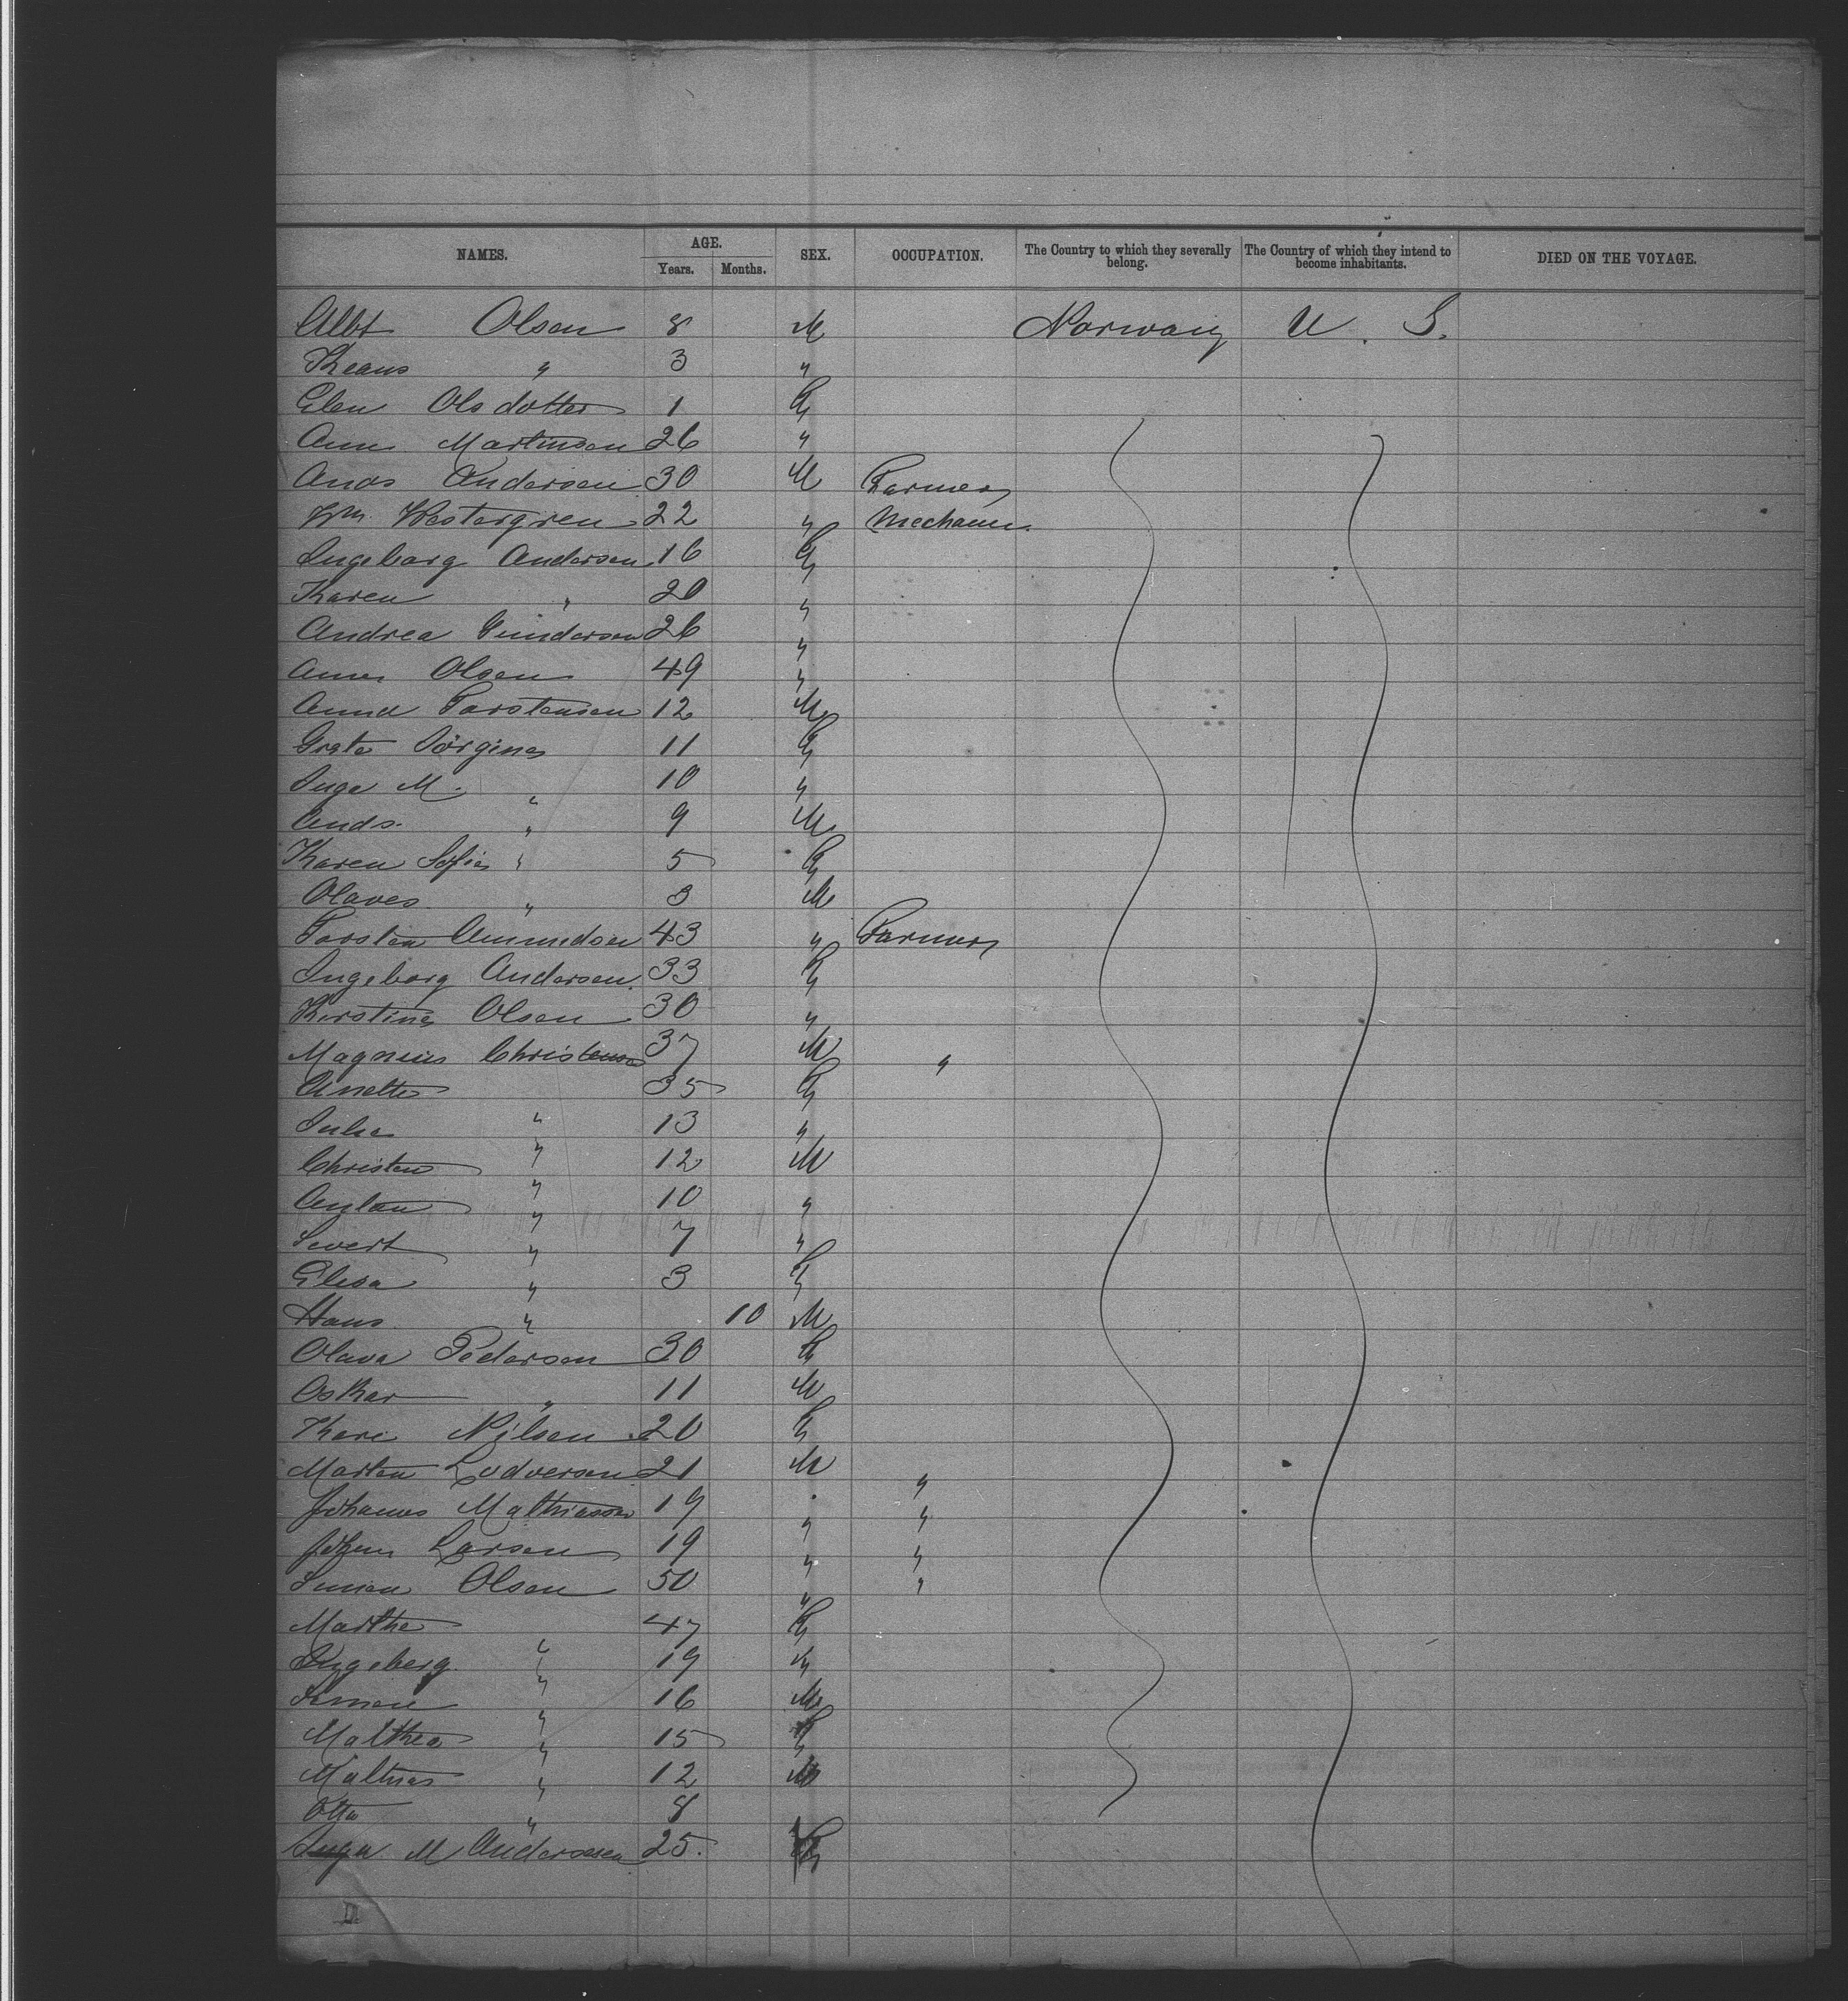 NAMES. AGE. SEX. OCCUPATION. The Country to which they severally belong. The Country of which they intend to become inhabitants. DIED ON THE VOYAGE.
Years. Months.
Albt Olsen 8 M Norway U. S.
3 "
Elen Olsdotter 1 F
Ann Martinsen 26 "
Ands Andersen 30 M Farmer
Wm Westergren 22 " Mechanic
Ingeborg Andersen 16 F
Karen " 20 "
Andrea Gundersen 26 "
Olsen 49 "
Torstensen 12 M
Grete Jörgine 11 F
Inga M. " 10 "
Ands. " 9 M
Karen Sofie " 5 F
Olaves " 3 M
Torsten Amundsen 43 " Farmer
Ingeborg Andersen 33 F
Kirstine Olsen 30 "
Magnus Christensen 37 M "
Anette 35 F
Julie " 13 "
Christen " 12 M
Anton " 10 "
Severt " 7 "
Elisa " 3 F
Hans " 10 M
Olava Pedersen 30 F
Oskar " 11 M
Kari Nilsen 20 F
Marten 21 M "
Johannes Mathiassen 19 " "
Larsen 19 " "
Simen Olsen 50 " "
Marthe " 47 F
Ingeberg " 19 F
Simen " 16 M
Malthea " 15 F
Mathias " 12 M
Otto " 8
Inga M Andersen 25. F